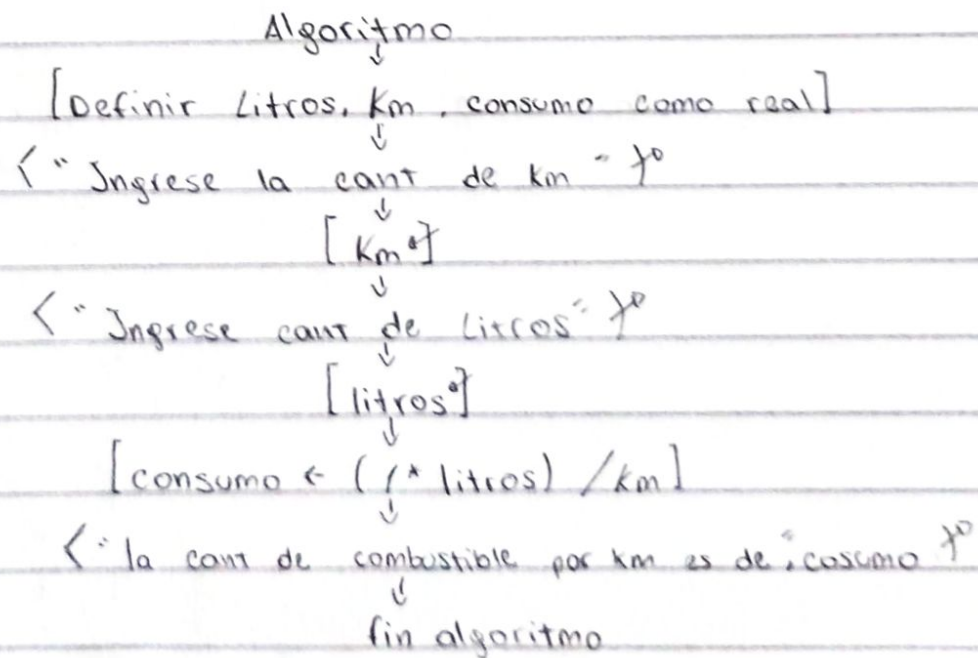 Algoritmo
[Definir Litros, Km, consumo como real]
"Ingrese la cant de km"
[Km]
"Ingrese cant de Litros"
[litros]
[consumo ← (1* litros) /km]
"la cant de combustible por km es de", cosumo
fin algoritmo